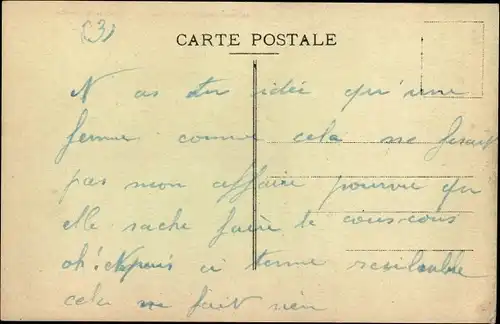 (3)
CARTE POSTALE
N as tu idée qu'une
femme comme cela ne ferait
pas mon affaire pourvu qu
elle sache faire le cous-cous
oh! et
cela ne fait rien